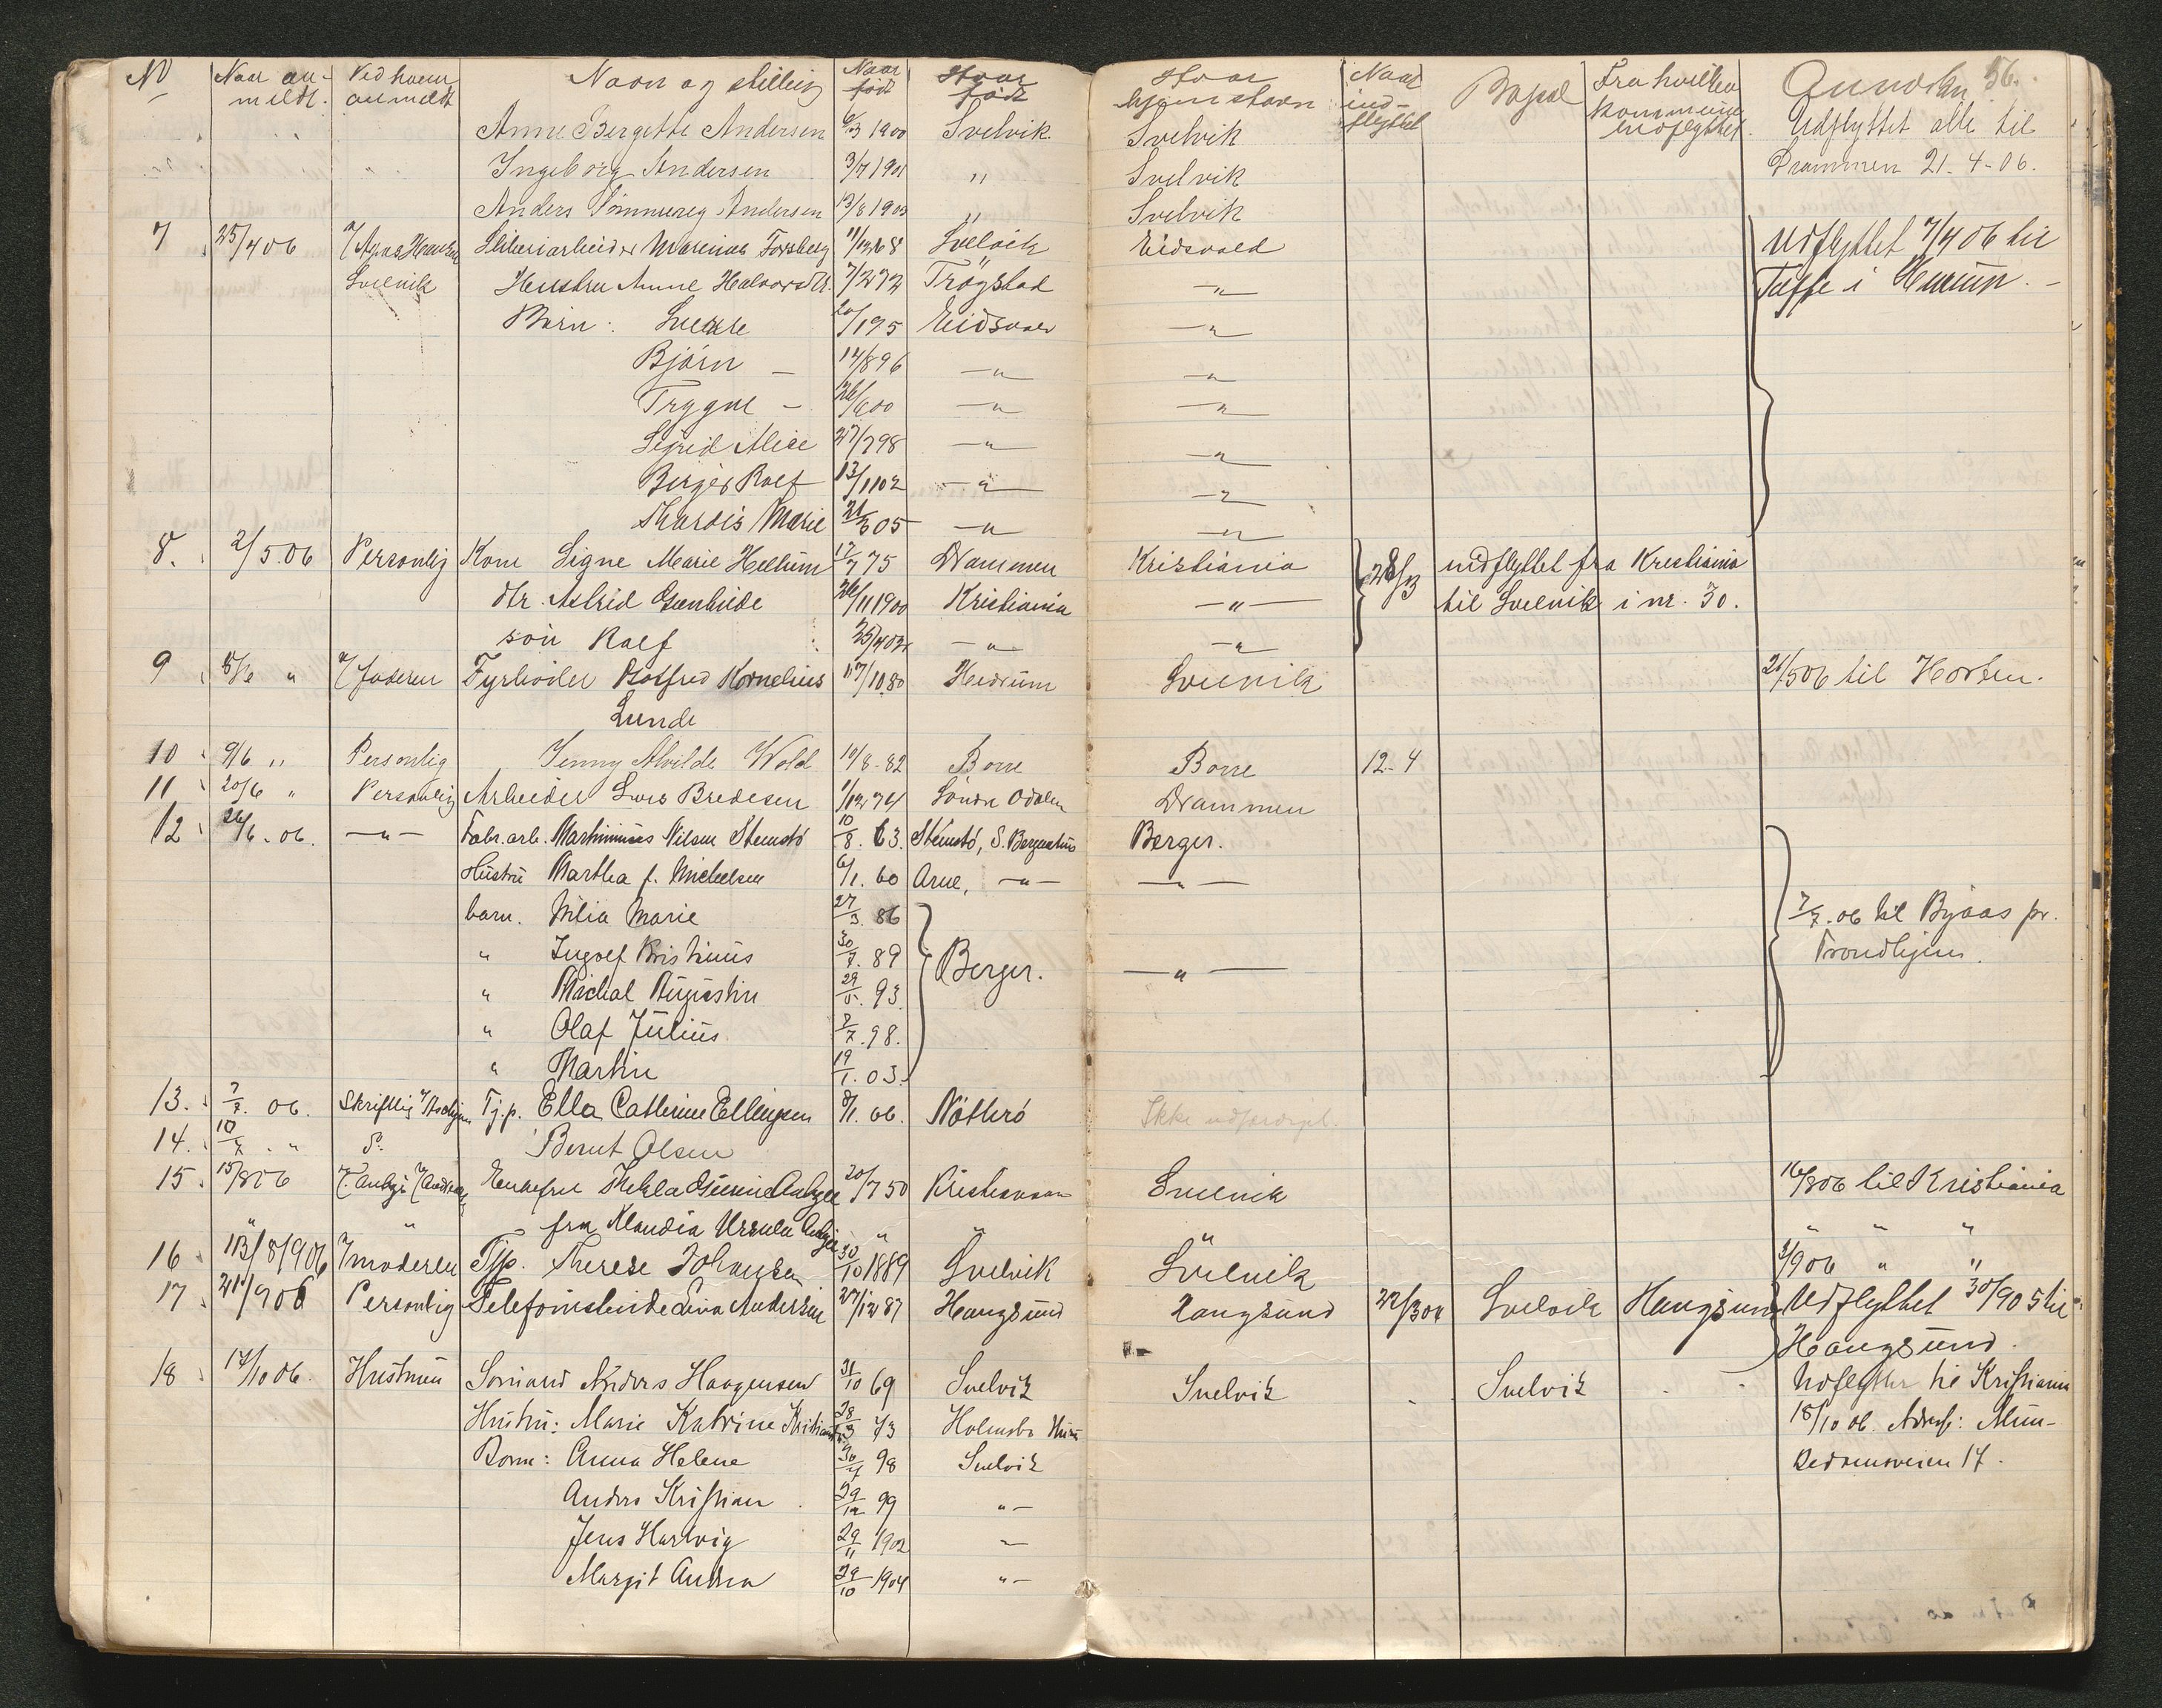 No Naar an- Ved hvem Navn og stilling Naar Hvor Hvor Naar Bopæl Fra hvilken Anmerkn 56.
meldt. anmeldt født født hjemstavn ind- kommune
flyttet indflyttet.
Anne Bergette Andersen 6/3 1900 Svelvik Svelvik Udflyttet alle til
Ingeborg Andersen 3/7 1901 " Svelvik Drammen 21-4-06.
Anders Andersen 13/8 1903 " Svelvik
7 25/4 06 v/ Agnes Hansen Sliberiarbeider Marinius Forsberg 11/12 68 Svelvik Eidsvold Udflyttet 7/4 06 til
Svelvik Hustru Anne Halvorsdtr. 7/2 72 Trøgstad — " — Tofte i Hurum. –
Børn: Sverre 20/1 95 Eidsvold — " —
Bjørn – 14/8 96 — " — — " —
Trygve – 26/6 00 — " — — " —
Sigrid Alice 27/7 98 — " — — " —
Birger Rolf 13/11 02 — " — — " —
Thordis Marie 21/3 05 — " — — " —
8. 2/5. 06 Personlig Kone Signe Marie Hellum 17/7 75 Drammen Kristiania 28/3 indflyttet fra Kristiania
dtr. Astrid Gunhilde 26/11 1900 Kristiania — " — til Svelvik i nr. 30.
søn Rolf 25/4 02 — " — — " —
9 5/6 " v/ faderen Fyrbøder Gotfred Kornelius 17/10 80 Hurum Svelvik 21/5 06 til Horten.
Lunde
10 9/6 " Personlig Jenny Alvilde Wold 10/8-82 Borre Borre 12-4
11 20/6 " Personlig Arbeider Lars Bredesen 1/12 74 Søndre Odalen Drammen
12 26/6. 06. — " — Fabr. arb. Martinius Nilsen Stemstø 10/8. 63. Stemstø, S. Bergenhus Berger.
Hustru Martha f. Michelsen 6/1. 60 Arne, — " — — " —
barn. Nilia Marie 27/3. 86 7/7. 06 til Byåas pr.
" Ingolf Kristinius 30/7. 89 Berger. — " — Trondhjem.
" Michal Augustin 29/5. 93
" Olaf Julius 7/7. 98.
" Martin 19/1. 03.
13. 7/7. 06. Skriftlig Tj.p. Ella Cathrine Ellingsen 8/1. 66. Nøtterø Ikke udfærdiget.
14. 10/7. " P. Bernt Olsen
15 15/8 06 Enkefru Thekla Aubye 20/7 50 Kristianssand Svelvik 16/8 06 til Kristiania
" – frk Klaudia Ursula Aubye " " " " " "
16 13/8 1906 v/ moderen Tjp. Therese Johansen 30/10 1889 Svelvik Svelvik 3/9 06 " "
17 21/9 06 Personlig Telefonistinde Lina Andersen 27/12 87 Haugsund Haugsund 22/3 04 Svelvik Haugsund Udflyttet 30/9 05 til
Haugsund.
18 14/10 06. Hustruen Sømand Anders Haagensen 31/10 69 Svelvik Svelvik Svelvik Udflytter til Kristiania
Hustru: Marie Katrine 28/3 73 Holmsbo Hurum 18/10 06. Adresse: Mun-
Børn: Anna Helene 30/7 98 Svelvik kedamsveien 17.
Anders Kristian 29/12 99 " –
Jens Hartvig 29/11 1902 –
Margit Andrea 29/10 1904 " –